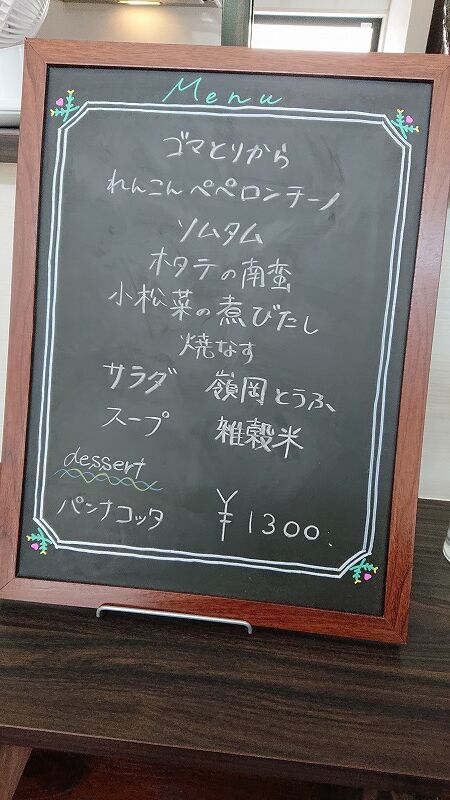 Menu
ゴマとりから
れんこんペペロンチーノ
ソムタム
ホタテの南蛮
小松菜の煮びたし
焼なす
サラダ 嶺岡とうふ
スープ 雑穀米
dessert
パンナコッタ ¥1300.